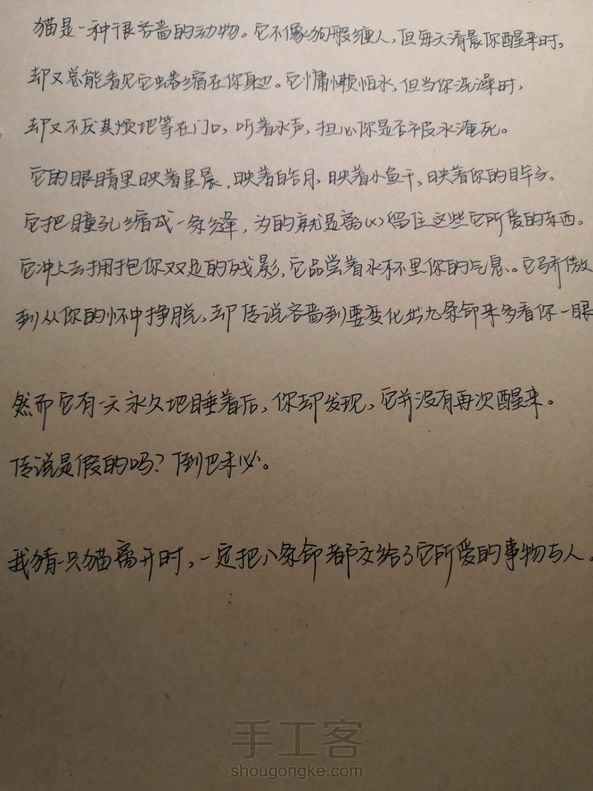 猫是一种很吝啬的动物。它不像狗般缠人,但每天清晨你醒来时,
却又总能看见它蜷缩在你身边。它慵懒怕水,但当你洗澡时,
却又不厌其烦地等在门口,听着水声,担心你是否被水淹死。
它的眼睛里映着星辰,映着皓月,映着小鱼干,映着你的眸子。
它把瞳孔缩成一条缝,为的就是离(x)留住这些它所爱的东西。
它冲上去拥抱你双足的残影,它品尝着水杯里你的气息。它骄傲
到从你的怀中挣脱,却传说吝啬到要变化出九条命来多看你一眼
然而它有一天永久地睡着后,你却发现,它并没有再次醒来。
传说是假的吗?倒也未必。
我猜一只猫离开时,一定把八条命都交给了它所爱的事物与人。
手工客
shougongke.com